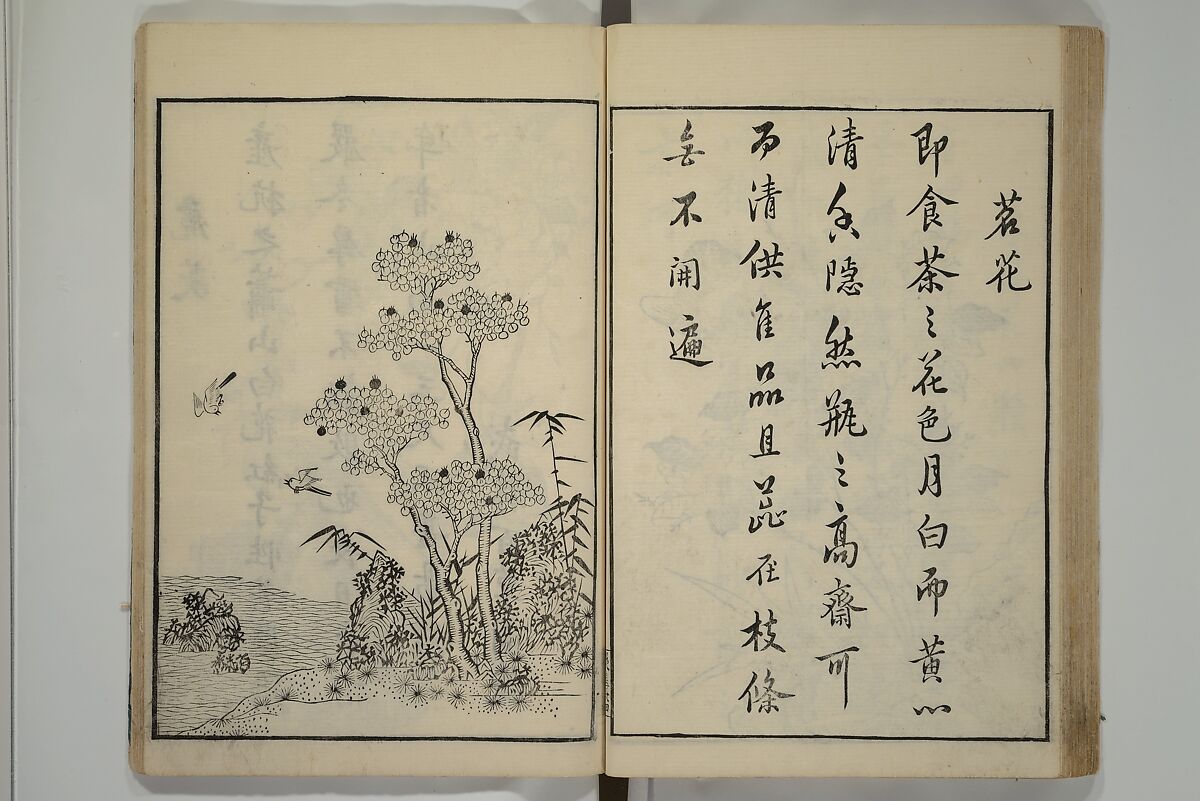 茗花
即食茶之花色月白而黄心
清香隱然瓶之高齋可
爲清供隹品且蕊在枝條
無不開遍